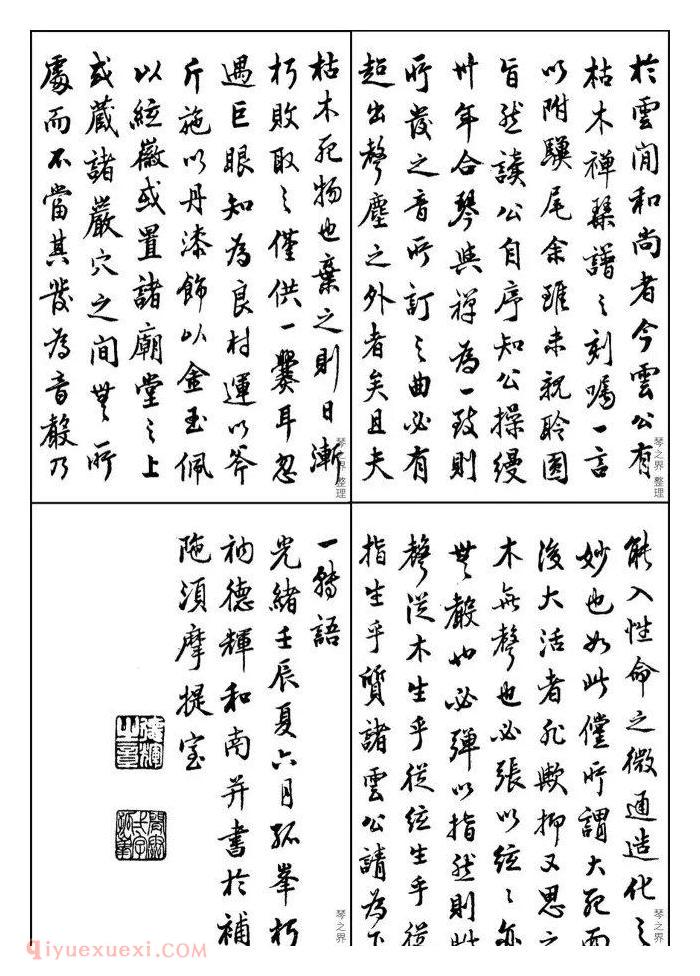 於雲閒和尚者今雲公有
枯木禪琴譜之刻囑一言
以附驥尾余雖未親聆圓
旨然讀公自序知公操縵
卅年合琴與禪為一致則
所發之音所訂之曲必有
超出聲塵之外者矣且夫
琴之界 整理
枯木死物也棄之則日漸
朽敗取之僅供一爨耳忽
遇巨眼知為良材運以斧
斤施以丹漆飾以金玉佩
以絃徽或置諸廟堂之上
或藏諸巖穴之間無所
處而不當其發為音聲乃
琴之界 整理
能入性命之微通造化之
妙也如此儻所謂大死而
後大活者非歟抑又思之
木無聲也必張以絃之亦
無聲也必彈以指然則此
聲從木生乎從絃生乎從
指生乎質諸雲公請為下
琴之界
一轉語
光緒壬辰夏六月孤峯朽
衲德輝和南并書於補
陁須摩提室
德輝之章
琴之界
qiyuexuexi.com